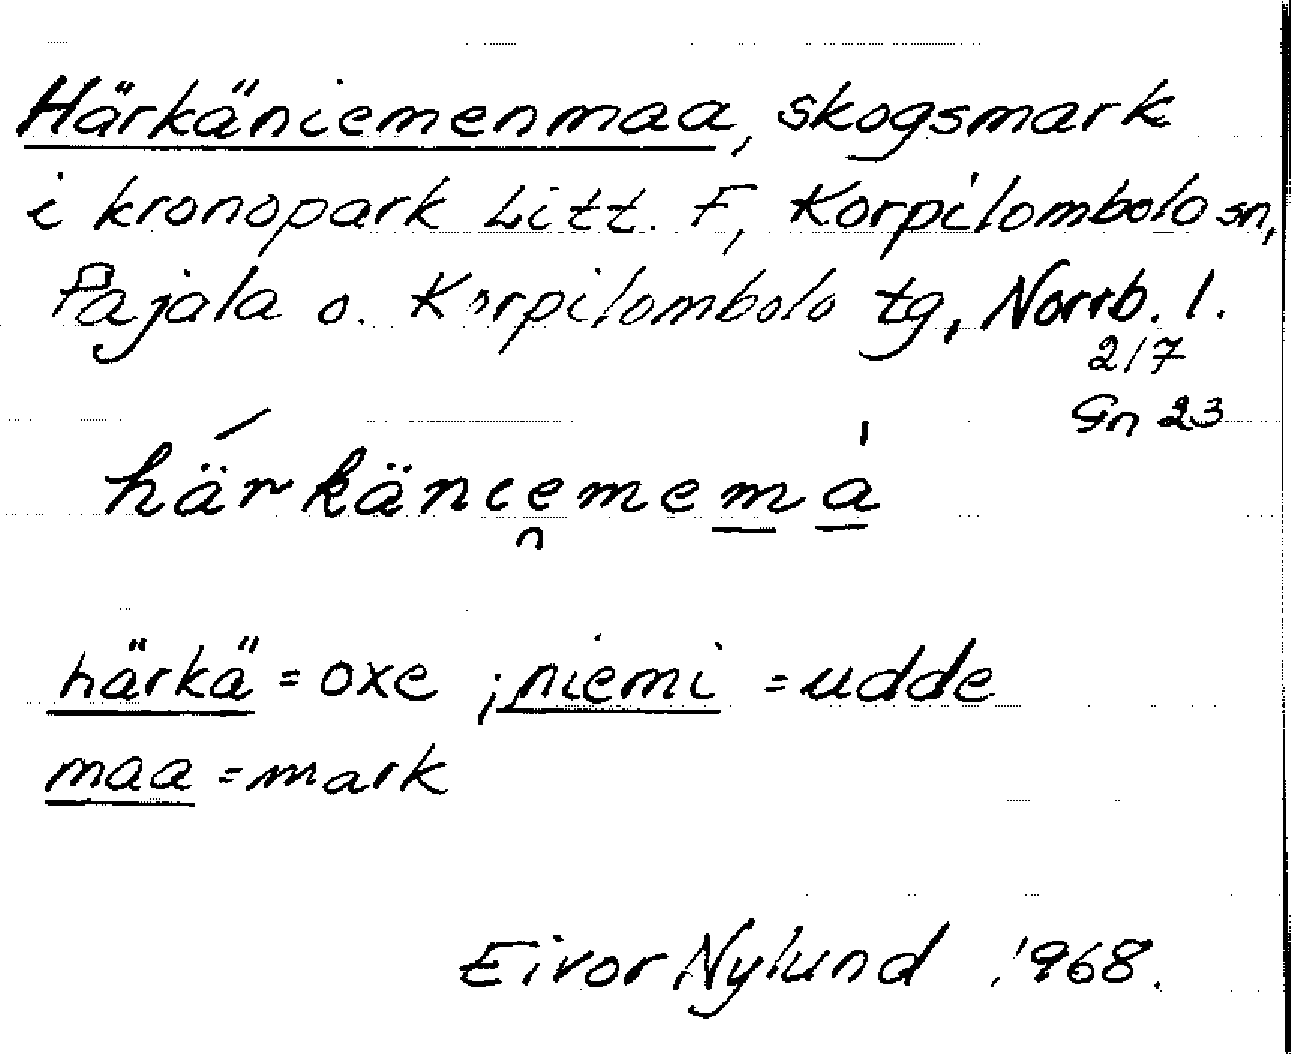 Härkäniemenmaa, skogsmark
i kronopark Litt. F, Korpilombolo sn,
Pajala o. Korpilombolo tg, Norrb. l.
217
Gn 23
härkäniememā
härkä = oxe ; niemi = udde
maa = mark
Eivor Nylund 1968.